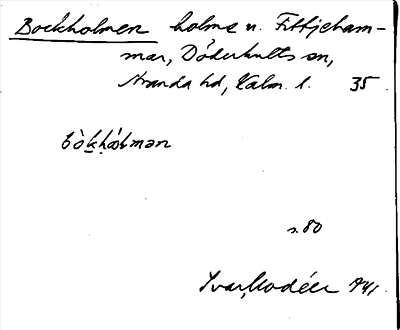 Bockholmen holme n. Fittjeham-
mar, Döderhults sn,
Aranda hd, Kalm. l. 35
bòkhólmən
s. 80
Ivar Modéer 1941